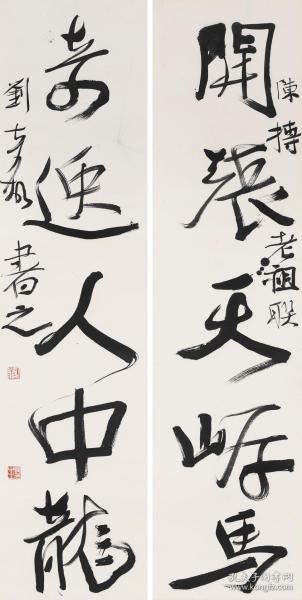 開張天岸馬
陳摶老祖聯
奇逸人中龍
劉奇晉書之
孔夫子旧书网